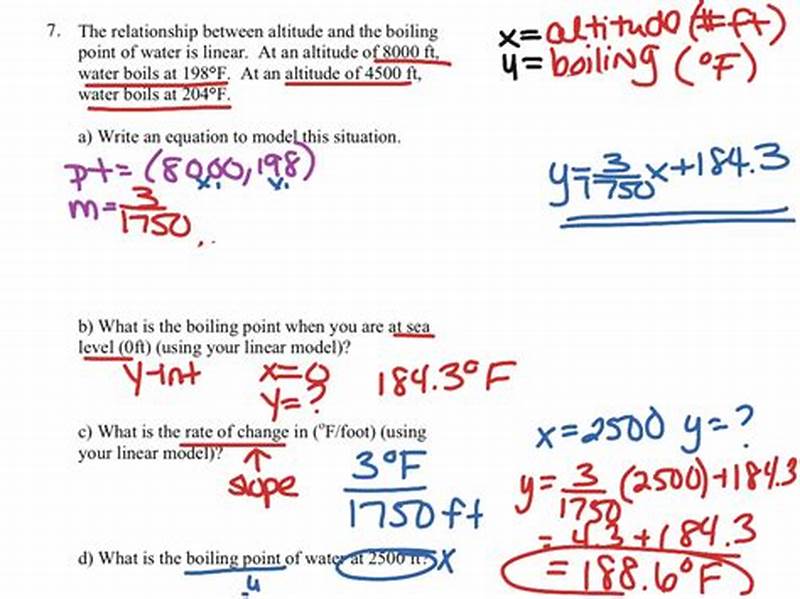 7. The relationship between altitude and the boiling
point of water is linear. At an altitude of 8000 ft,
water boils at 198°F. At an altitude of 4500 ft,
water boils at 204°F.
x= altitudo (# ft)
y= boiling (°F)
a) Write an equation to model this situation.
pt= (8000, 198)
x. y.
m= 3/1750
y= 3/1750 x+184.3
b) What is the boiling point when you are at sea
level (0ft) (using your linear model)?
y-int x=0 184.3° F
y= ?
c) What is the rate of change in (°F/foot) (using
your linear model)?
↑
slope
3°F/1750 ft
x=2500 y=?
y= 3/1750 (2500)+184.3
= 4.3+184.3
= 188.6°F
d) What is the boiling point of water at 2500 ft? x
y